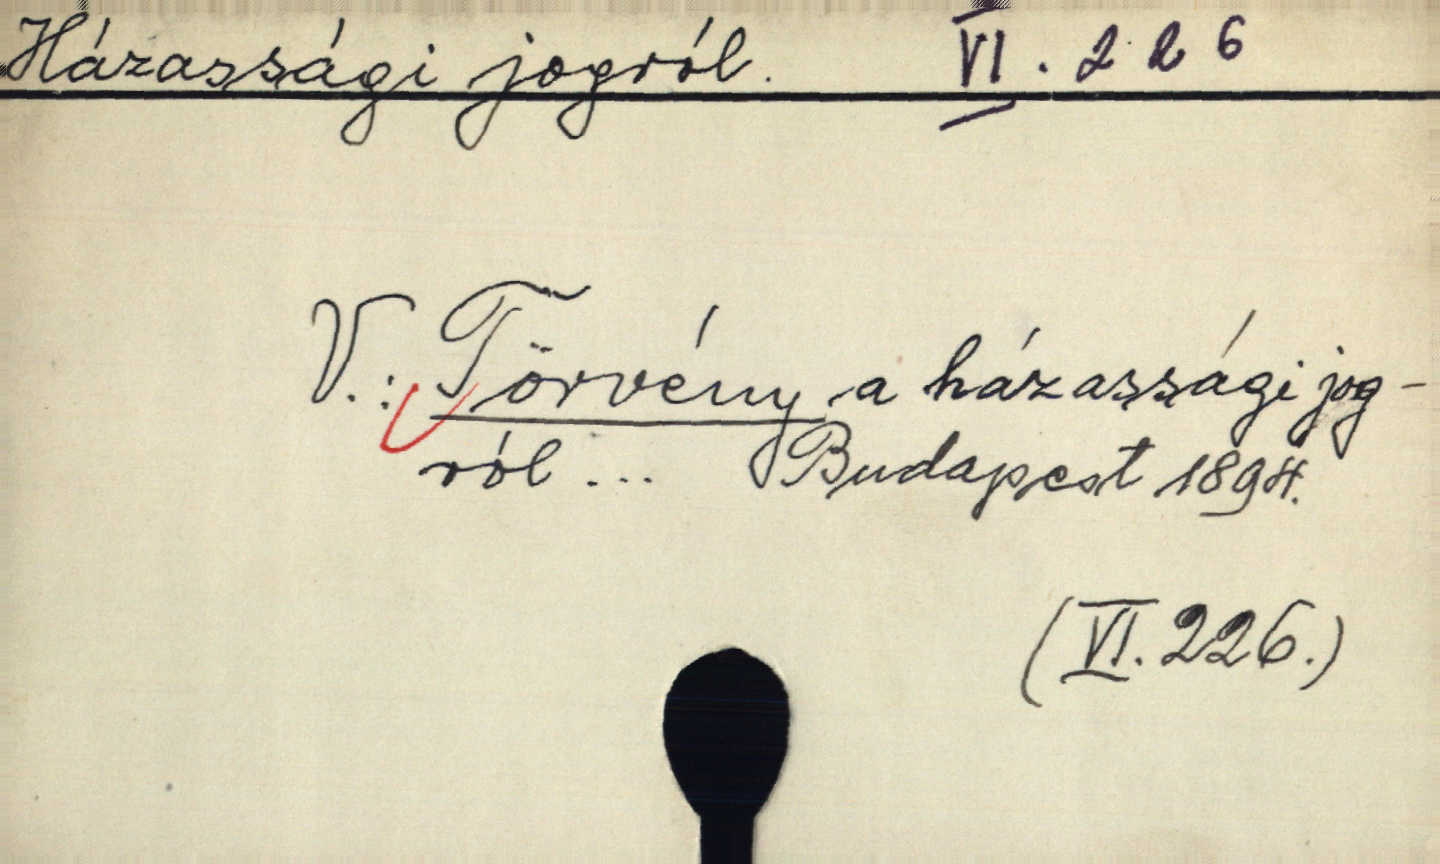 Házassági jogról. VI. 226
V.: Törvény a házassági jog-
ról ... Budapest 1894.
(VI. 226.)